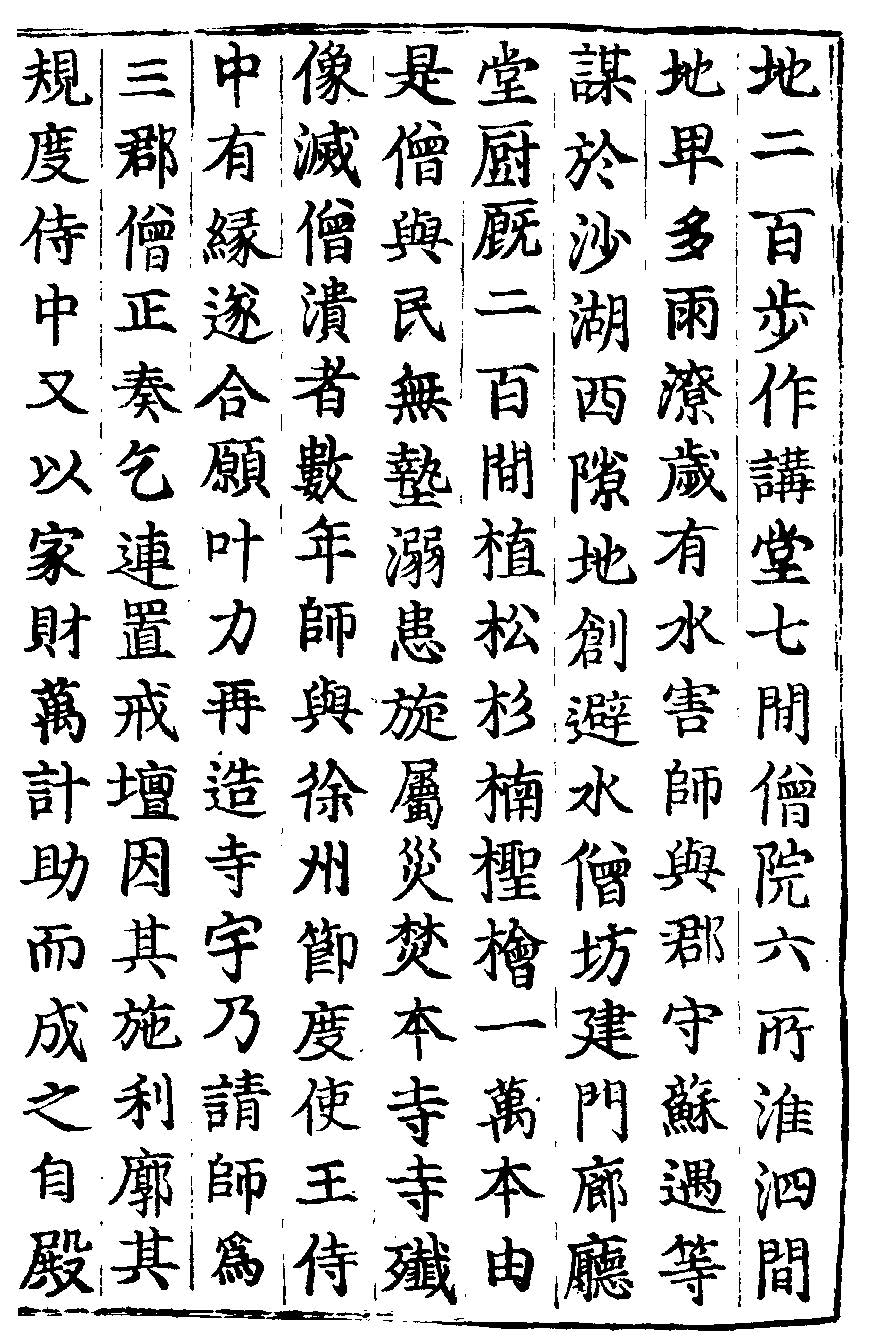 地二百步作講堂七間僧院六所淮泗間
地卑多雨潦歲有水害師與郡守蘇遇等
謀於沙湖西隙地創避水僧坊建門廊廳
堂厨厩二百間植松杉楠檉檜一萬本由
是僧與民無墊溺患旋屬災焚本寺寺殲
像滅僧潰者數年師與徐州節度使王侍
中有緣遂合願叶力再造寺宇乃請師爲
三郡僧正奏乞連置戒壇因其施利廓其
規度侍中又以家財萬計助而成之自殿